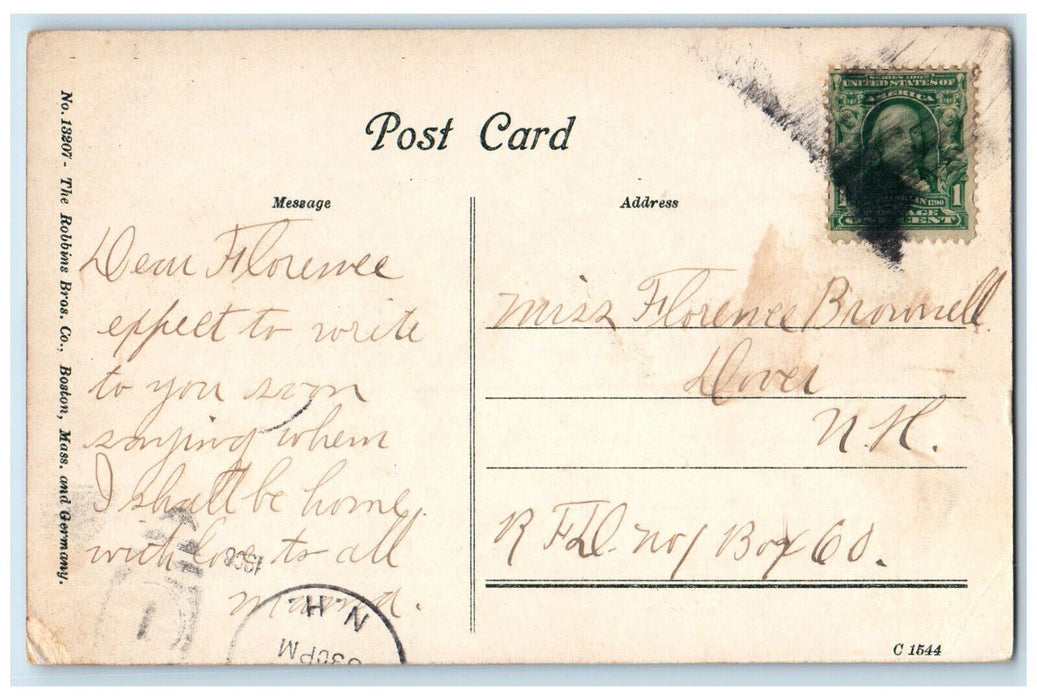 Post Card
No. 13207 - The Robbins Bros. Co., Boston, Mass. and Germany.
Message
Dear Florence
expect to write
to you soon
saying when
I shall be home.
with love to all
Mama.
Address
Miss Florence Brownell
Dover
N.H.
R F D. No 1 Box 60.
SERIES 1902
UNITED STATES OF
AMERICA
1
N.H.
630 PM
C 1544